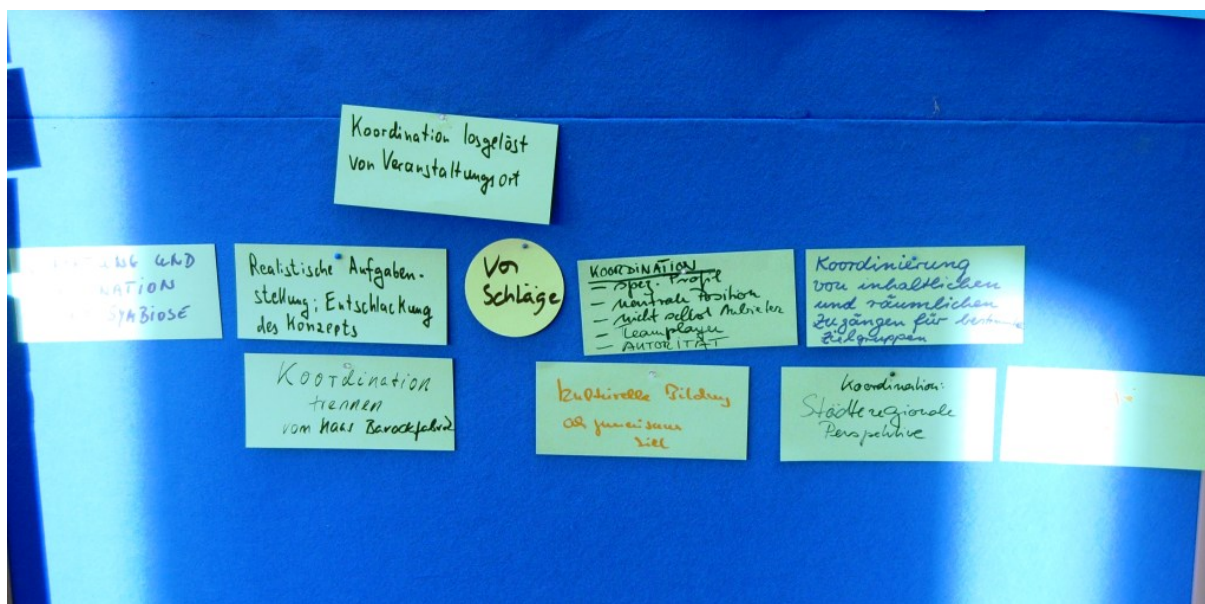 Koordination losgelöst
von Veranstaltungsort
UND
SYMBIOSE
Realistische Aufgaben-
stellung; Entschlackung
des Konzepts
Vor
Schläge
KOORDINATION
– spez. Profil
– neutrale Position
– nicht selbst Anbieter
– Teamplayer
– AUTORITÄT
Koordinierung
von inhaltlichen
und räumlichen
Zugängen für
Zielgruppen
Koordination
trennen
vom Haus Barockfabrik
kulturelle Bildung
als gemeinsames
Ziel
Koordination:
Städteregionale
Perspektive